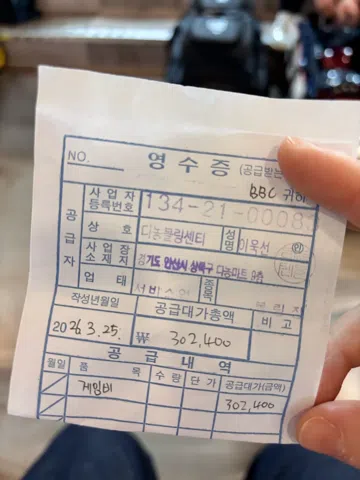 NO. 영 수 증 (공급받는
BBC 귀하
공급자
사업자 등록번호 134-21-00083
상 호 디농볼링센터 성명 이욱선
사업장 소재지 경기도 안산시 상록구 디농마트 9층
업 태 서비스업 종목
작성년월일 공급대가총액 비 고
2026. 3. 25. ₩ 302,400
공 급 내 역
월일 품 목 수 량 단 가 공급대가(금액)
게임비 302,400